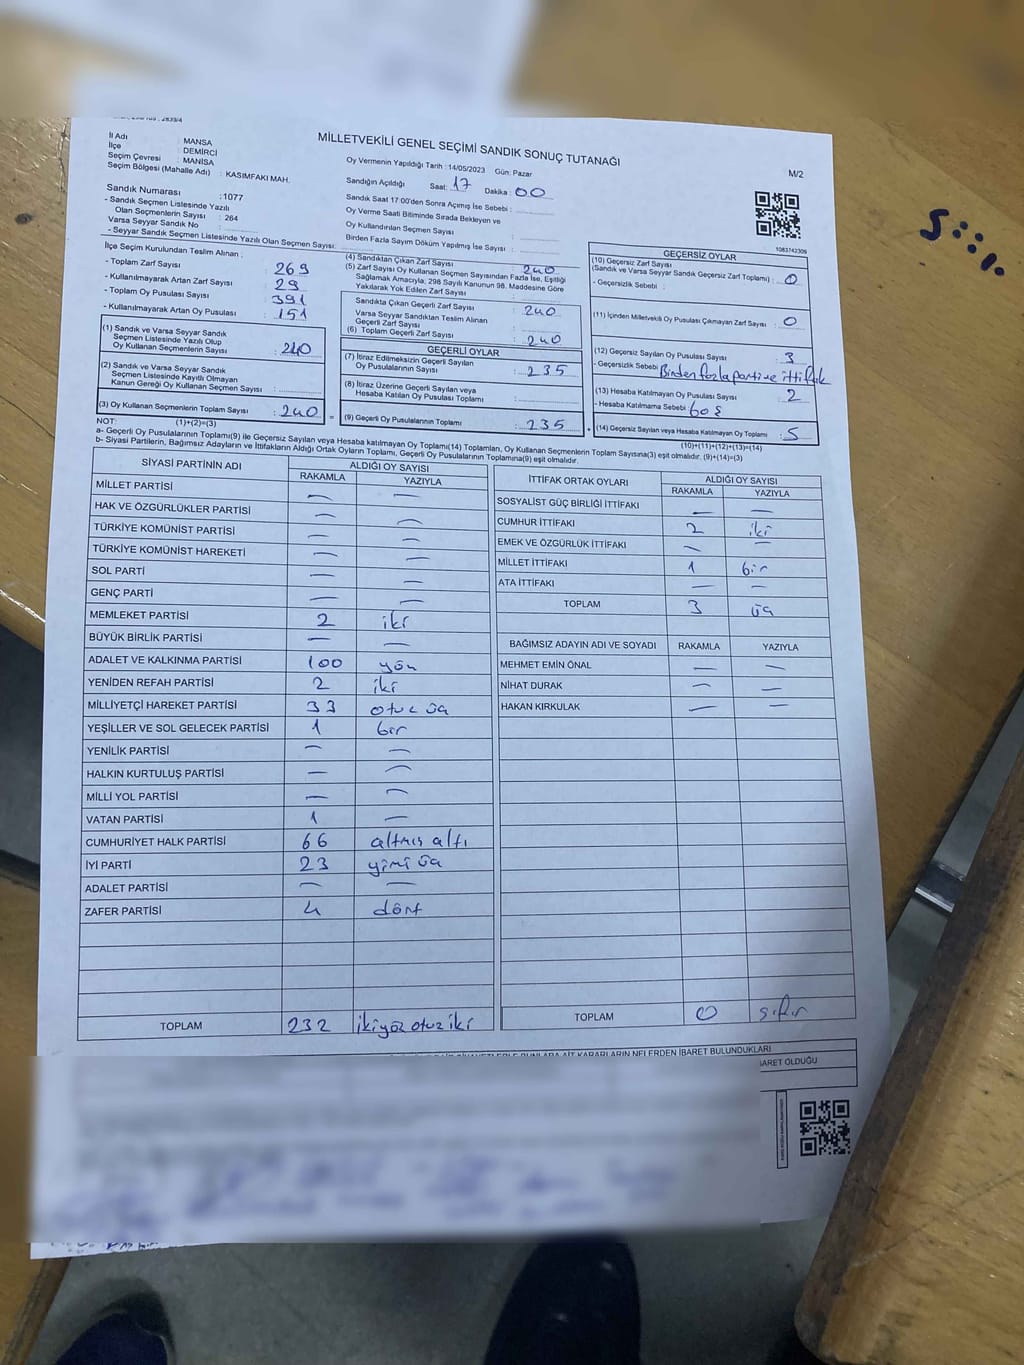 MİLLETVEKİLİ GENEL SEÇİMİ SANDIK SONUÇ TUTANAĞI
M/2
İl Adı : MANİSA
İlçe : DEMİRCİ
Seçim Çevresi : MANİSA
Seçim Bölgesi (Mahalle Adı) : KASIMFAKI MAH.
Oy Vermenin Yapıldığı Tarih : 14/05/2023 Gün: Pazar
Sandığın Açıldığı Saat: 17 Dakika : 00
Sandık Saat 17:00'den Sonra Açımış İse Sebebi :
Oy Verme Saati Bitiminde Sırada Bekleyen ve
Oy Kullandırılan Seçmen Sayısı :
Birden Fazla Sayım Döküm Yapılmış İse Sayısı :
Sandık Numarası : 1077
- Sandık Seçmen Listesinde Yazılı
Olan Seçmenlerin Sayısı : 264
Varsa Seyyar Sandık No :
- Seyyar Sandık Seçmen Listesinde Yazılı Olan Seçmen Sayısı:
1083742309
İlçe Seçim Kurulundan Teslim Alınan :
- Toplam Zarf Sayısı : 269
- Kullanılmayarak Artan Zarf Sayısı : 29
- Toplam Oy Pusulası Sayısı : 391
- Kullanılmayarak Artan Oy Pusulası : 151
(1) Sandık ve Varsa Seyyar Sandık
Seçmen Listesinde Yazılı Olup
Oy Kullanan Seçmenlerin Sayısı : 240
(2) Sandık ve Varsa Seyyar Sandık
Seçmen Listesinde Kayıtlı Olmayan
Kanun Gereği Oy Kullanan Seçmen Sayısı :
(3) Oy Kullanan Seçmenlerin Toplam Sayısı : 240
(1)+(2)=(3)
(4) Sandıktan Çıkan Zarf Sayısı : 240
(5) Zarf Sayısı Oy Kullanan Seçmen Sayısından Fazla İse, Eşitliği
Sağlamak Amacıyla; 298 Sayılı Kanunun 98. Maddesine Göre
Yakılarak Yok Edilen Zarf Sayısı :
Sandıkta Çıkan Geçerli Zarf Sayısı : 240
Varsa Seyyar Sandıktan Teslim Alınan
Geçerli Zarf Sayısı :
(6) Toplam Geçerli Zarf Sayısı : 240
GEÇERLİ OYLAR
(7) İtiraz Edilmeksizin Geçerli Sayılan
Oy Pusulalarının Sayısı : 235
(8) İtiraz Üzerine Geçerli Sayılan veya
Hesaba Katılan Oy Pusulası Toplamı :
(9) Geçerli Oy Pusulalarının Toplamı : 235
GEÇERSİZ OYLAR
(10) Geçersiz Zarf Sayısı
(Sandık ve Varsa Seyyar Sandık Geçersiz Zarf Toplamı) : 0
- Geçersizlik Sebebi :
(11) İçinden Milletvekili Oy Pusulası Çıkmayan Zarf Sayısı : 0
(12) Geçersiz Sayılan Oy Pusulası Sayısı : 3
- Geçersizlik Sebebi : Birden fazla parti ve ittifak
(13) Hesaba Katılmayan Oy Pusulası Sayısı : 2
- Hesaba Katılmama Sebebi : boş
(14) Geçersiz Sayılan veya Hesaba Katılmayan Oy Toplamı : 5
(10)+(11)+(12)+(13)=(14)
NOT:
a- Geçerli Oy Pusulalarının Toplamı(9) ile Geçersiz Sayılan veya Hesaba katılmayan Oy Toplamı(14) Toplamları, Oy Kullanan Seçmenlerin Toplam Sayısına(3) eşit olmalıdır. (9)+(14)=(3)
b- Siyasi Partilerin, Bağımsız Adayların ve İttifakların Aldığı Ortak Oyların Toplamı, Geçerli Oy Pusulalarının Toplamına(9) eşit olmalıdır.
SİYASİ PARTİNİN ADI ALDIĞI OY SAYISI
RAKAMLA YAZIYLA
MİLLET PARTİSİ — —
HAK VE ÖZGÜRLÜKLER PARTİSİ — —
TÜRKİYE KOMÜNİST PARTİSİ — —
TÜRKİYE KOMÜNİST HAREKETİ — —
SOL PARTİ — —
GENÇ PARTİ — —
MEMLEKET PARTİSİ 2 iki
BÜYÜK BİRLİK PARTİSİ — —
ADALET VE KALKINMA PARTİSİ 100 yüz
YENİDEN REFAH PARTİSİ 2 iki
MİLLİYETÇİ HAREKET PARTİSİ 33 otuz üç
YEŞİLLER VE SOL GELECEK PARTİSİ 1 bir
YENİLİK PARTİSİ — —
HALKIN KURTULUŞ PARTİSİ — —
MİLLİ YOL PARTİSİ — —
VATAN PARTİSİ 1 —
CUMHURİYET HALK PARTİSİ 66 altmış altı
İYİ PARTİ 23 yirmi üç
ADALET PARTİSİ — —
ZAFER PARTİSİ 4 dört
TOPLAM 232 ikiyüz otuz iki
İTTİFAK ORTAK OYLARI ALDIĞI OY SAYISI
RAKAMLA YAZIYLA
SOSYALİST GÜÇ BİRLİĞİ İTTİFAKI — —
CUMHUR İTTİFAKI 2 iki
EMEK VE ÖZGÜRLÜK İTTİFAKI — —
MİLLET İTTİFAKI 1 bir
ATA İTTİFAKI — —
TOPLAM 3 üç
BAĞIMSIZ ADAYIN ADI VE SOYADI RAKAMLA YAZIYLA
MEHMET EMİN ÖNAL — —
NİHAT DURAK — —
HAKAN KIRKULAK — —
TOPLAM 0 sıfır
KARARLARIN NELERDEN İBARET BULUNDUKLARI
İBARET OLDUĞU